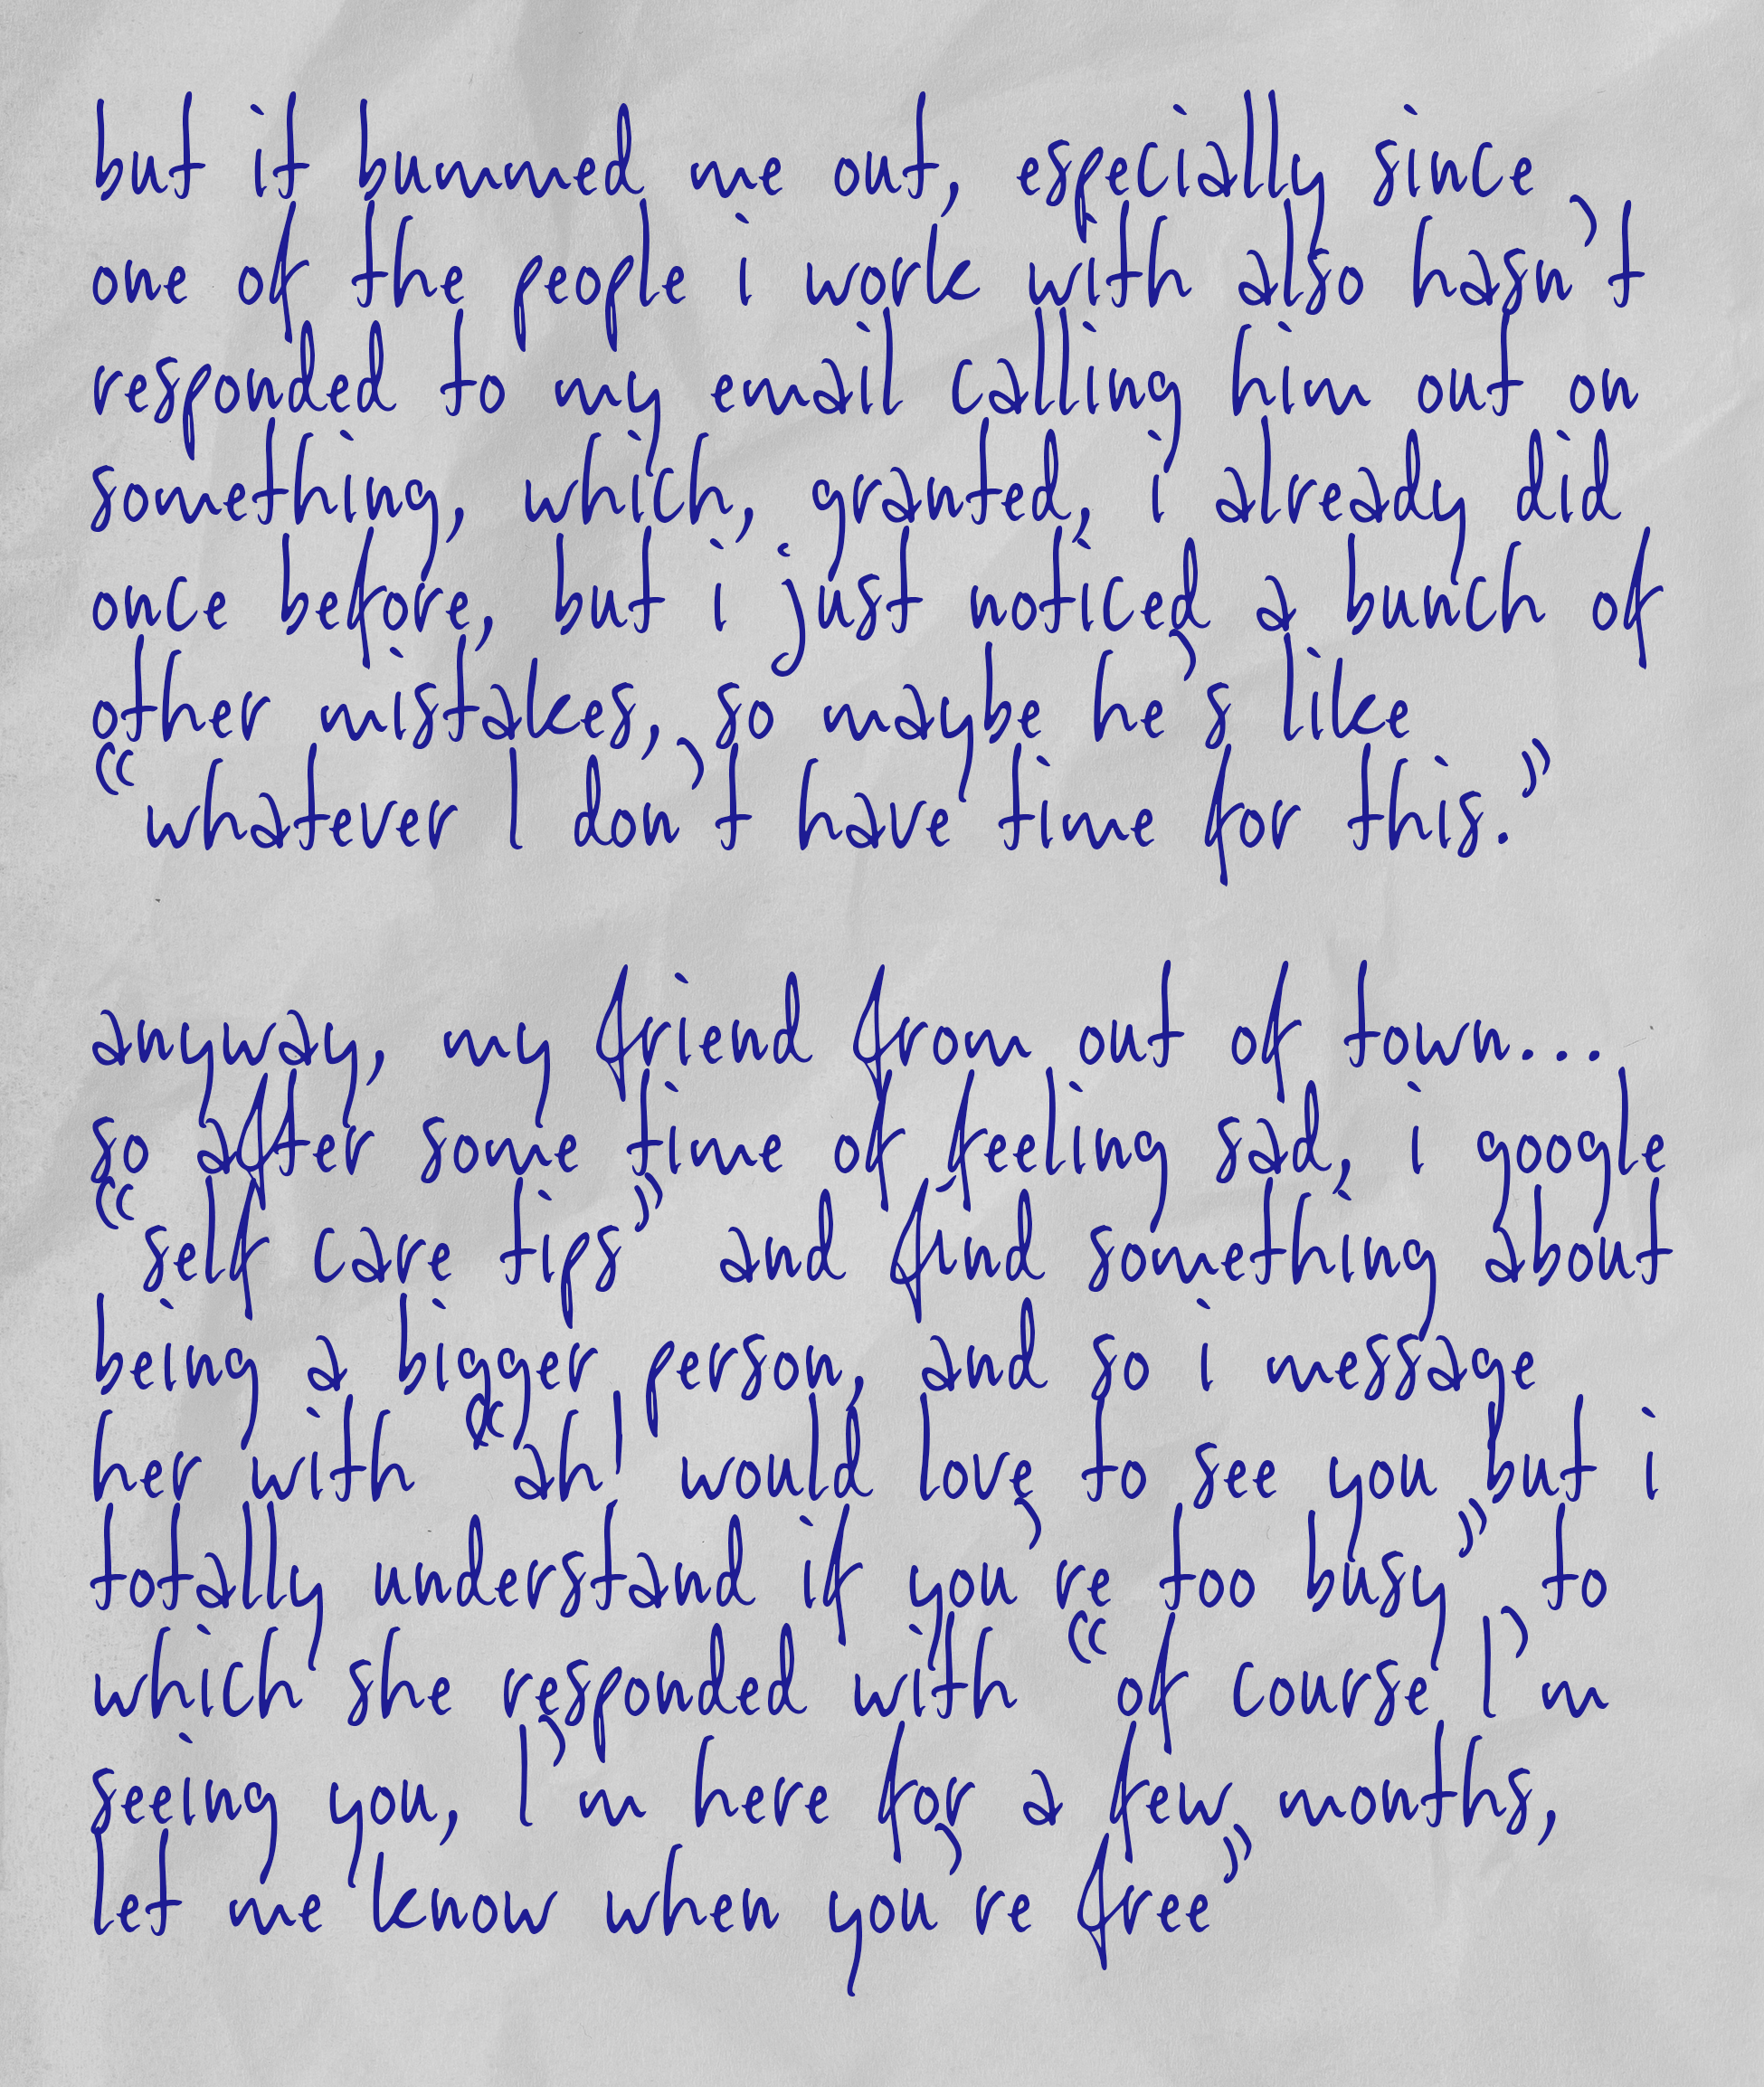 but it bummed me out, especially since
one of the people i work with also hasn't
responded to my email calling him out on
something, which, granted, i already did
once before, but i just noticed a bunch of
other mistakes, so maybe he's like
“whatever I don't have time for this.”
anyway, my friend from out of town...
so after some time of feeling sad, i google
“self care tips” and find something about
being a bigger person, and so i message
her with “ah! would love to see you but i
totally understand if you're too busy” to
which she responded with “of course I'm
seeing you, I'm here for a few months,
let me know when you're free”